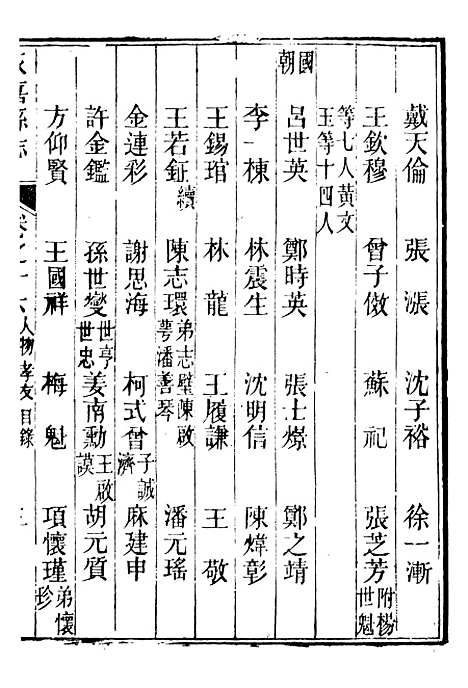 戴天倫　張漲　沈子裕　徐一漸
王欽穆　曾子儆　蘇祀　張芝芳附楊世魁
等七人黃文玉等十四人
國朝
呂世英　鄭時英　張士燝　鄭之靖
李棟　林震生　沈明信　陳煒彰
王錫琯　林龍　王履謙　王敬
王若鉦續　陳志環弟志璧陳啟萼潘善琴　潘元瑤
金連彩　謝思海　柯式曾子誠濟　麻建申
許金鑑　孫世燮世亨世忠　姜南勳王啟謨　胡元質
方仰賢　王國祥　梅魁　項懷瑾弟懷珍
永嘉縣志　卷之十六人物孝友目錄　三